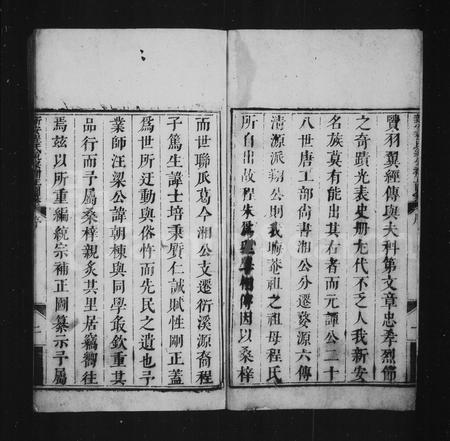 賢羽翼經傳與大科第文章忠孝烈節
之奇蹟光表史册尤代不乏人我新安
名族莫有能出其右者而元譚公二十
八世唐工部尚書湘公分遷婺源六傳
清源派翔公則我晦菴祖之祖母程氏
所自出故程朱為理學相傳因以桑梓
而世聯瓜葛今湘公支遷衍溪源裔程
子篤生諱士培秉質仁誠賦性剛正蓋
爲世所迁動與俗忤而先民之遺也予
業師汪梁公諱朝棟與同學最欽重其
品行而予屬桑梓親炙其里居竊嚮往
焉玆以所重編統宗補正圖纂示予屬